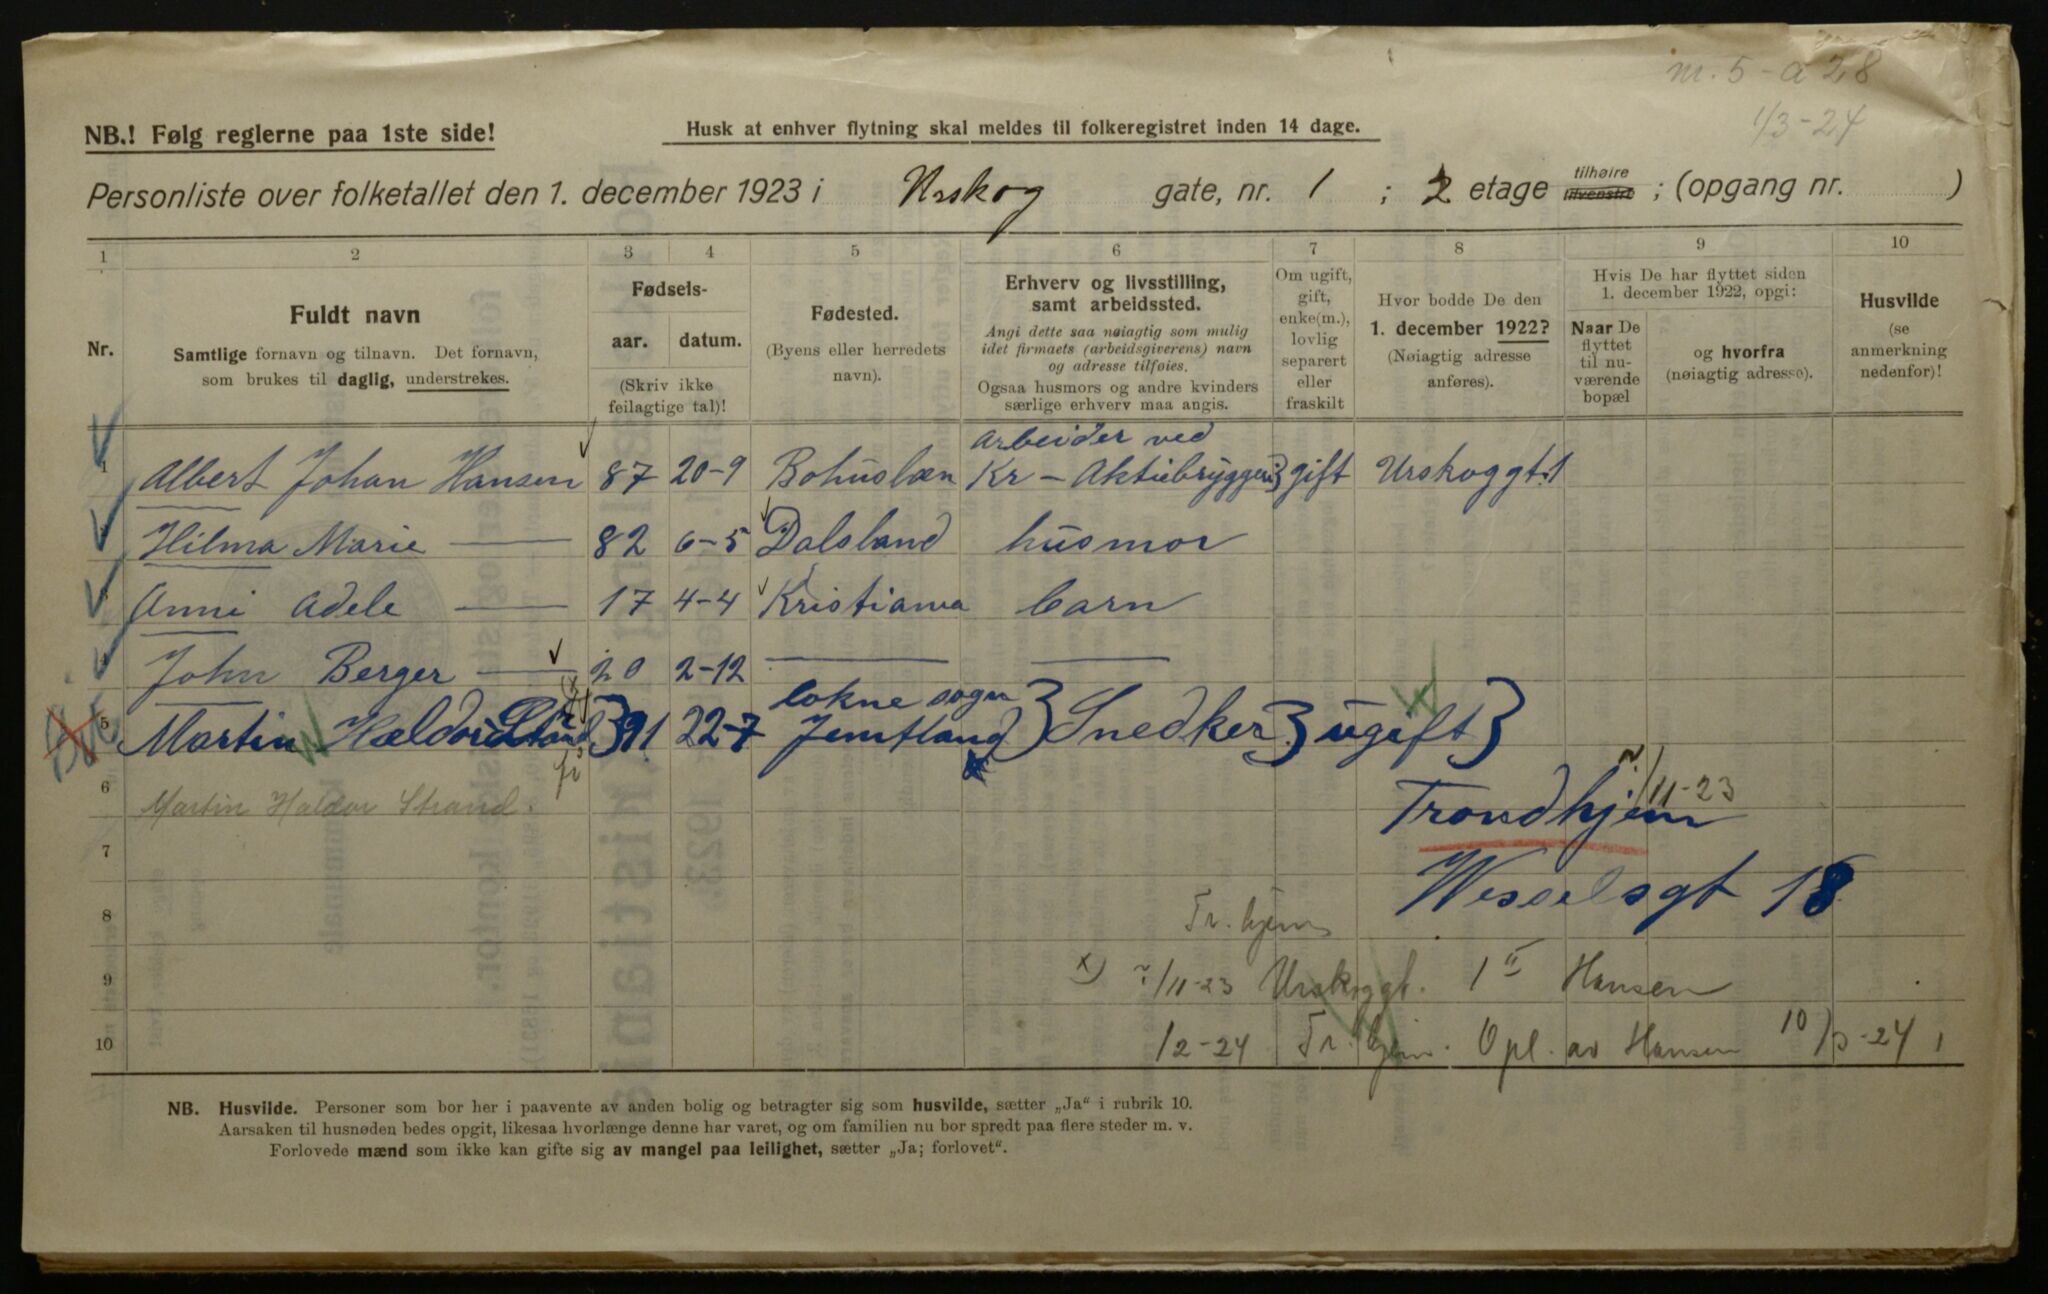 m. 5 - a 28
1/3 - 24
NB.! Følg reglerne paa 1ste side!
Husk at enhver flytning skal meldes til folkeregistret inden 14 dage.
Personliste over folketallet den 1. december 1923 i Urskog gate, nr. 1 ; 2 etage tilhøire tilvenstre ; (opgang nr. )
1 2 3 4 5 6 7 8 9 10
Nr.
Fuldt navn
Samtlige fornavn og tilnavn. Det fornavn,
som brukes til daglig, understrekes.
Fødsels-
aar. datum.
(Skriv ikke
feilagtige tal)!
Fødested.
(Byens eller herredets
navn).
Erhverv og livsstilling,
samt arbeidssted.
Angi dette saa nøiagtig som mulig
idet firmaets (arbeidsgiverens) navn
og adresse tilføies.
Ogsaa husmors og andre kvinders
særlige erhverv maa angis.
Om ugift,
gift,
enke(m.),
lovlig
separert
eller
fraskilt
Hvor bodde De den
1. december 1922?
(Nøiagtig adresse
anføres).
Hvis De har flyttet siden
1. december 1922, opgi:
Naar De
flyttet
til nu-
værende
bopæl
og hvorfra
(nøiagtig adresse).
Husvilde
(se
anmerkning
nedenfor)!
Arbeider ved
1 Albert Johan Hansen 87 20-9 Bohuslæn Kr - Aktiebryggeri gift Urskoggt. 1
2 Hilma Marie — 82 6-5 Dalsland husmor
3 Anni Adele — 17 4-4 Kristiania barn
4 John Berger — 20 2-12 — —
lokne sogn
5 Martin Haldor Strand 91 22-7 Jemtland Snedker ugift
11-23
6 Martin Haldor Strand. Trondhjem
7
Wesselsgt 18
8 Tr. hjem
9 x) /11-23 Urskoggt. 1 II Hansen
10 1/2-24 Tr. hjem. Opl. av Hansen 10/3-24
NB. Husvilde. Personer som bor her i paavente av anden bolig og betragter sig som husvilde, sætter „Ja" i rubrik 10.
Aarsaken til husnøden bedes opgit, likesaa hvorlænge denne har varet, og om familien nu bor spredt paa flere steder m. v.
Forlovede mænd som ikke kan gifte sig av mangel paa leilighet, sætter „Ja; forlovet".